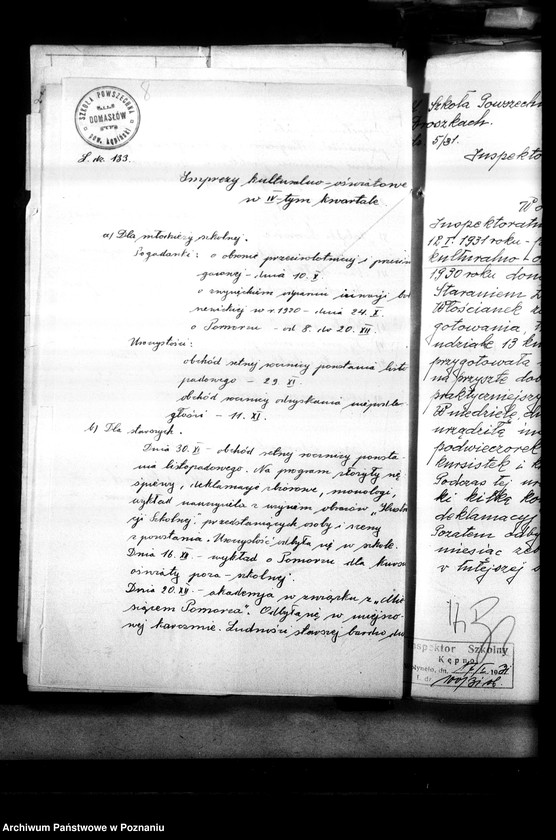 8
SZKOŁA POWSZECHNA
DOMASŁÓW
pow. kępiński
L. dz. 133.
Imprezy kulturalno-oświatowe
w IV-tym kwartale
a) Dla młodzieży szkolnej.
Pogadanki: o obronie przeciwlotniczej i przeciw
gazowej - dnia 10. X.
o zwycięskim odparciu inwazji bol
szewickiej w r. 1920 - dnia 24. X
o Pomorzu - od 8. do 20. XII.
Uroczyścia:
obchód setnej rocznicy powstania listo
padowego - 29. XI.
obchód rocznicy odzyskania niepodle
głości - 11. XI.
b) Dla starszych.
Dnia 30. XI - obchód setnej rocznicy powsta
nia listopadowego. Na program złożyły się
śpiewy, deklamacje zbiorowe, monologi,
wykład nauczyciela z użyciem obrazów
Szkolnej. przedstawiających osoby i sceny
z powstania. Uroczystość odbyła się w szkole.
Dnia 16. XII. - wykład o Pomorzu dla kursu
oświaty poza-szkolnej.
Dnia 20. XII. - akademja w związku z „Mie
siącem Pomorza". Odbyła się w miejsco
wej karczmie. Ludności starszej bardzo du
Szkoła Powszech
5/31.
Inspekto
Inspektorat
12. I. 1931 roku -
kulturalno - o
1930 roku don
Staraniem
Włościanek
gotowania,
udziale 13 ku
przygotowała
na przyszłe
praktyczniejszy
W niedzielę
urządziła
podwieczorek
kursistek i k
Podczas tej
ki kilka ko
deklamacyj
Pozatem odby
miesiąc
w tutejszej s
Inspektor Szkolny
Kępno
Wpłynęło, dn. 1931
L. dz.
Archiwum Państwowe w Poznaniu